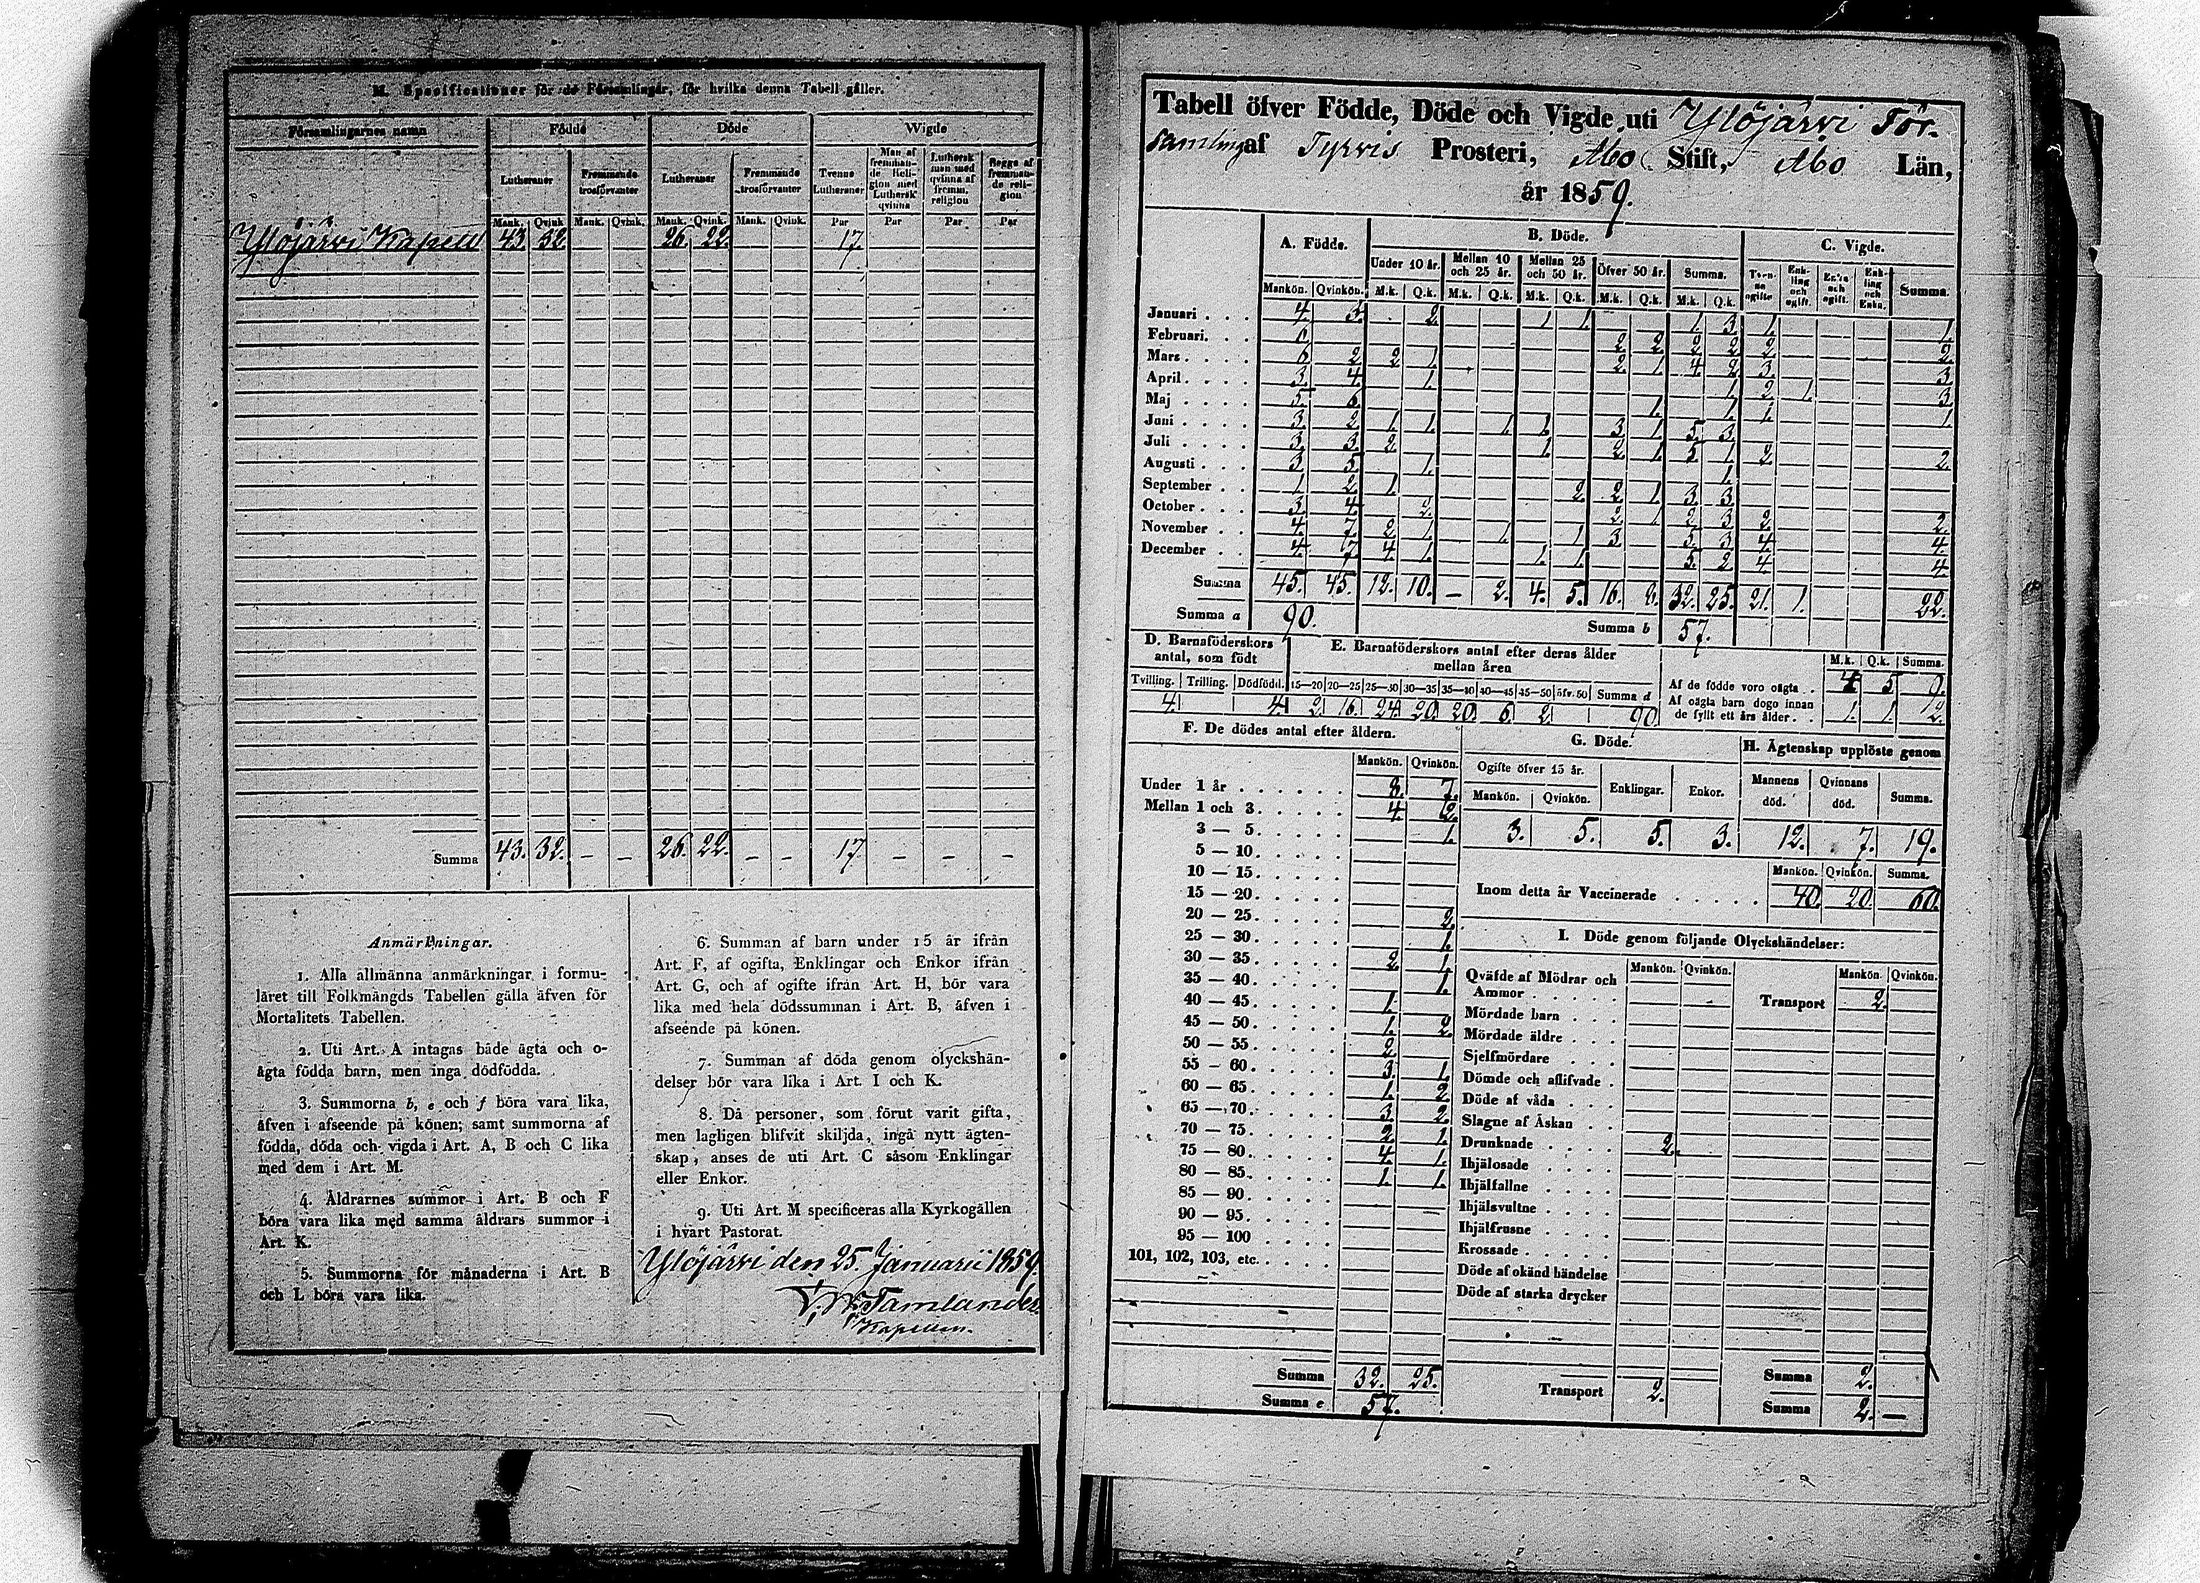 M. Specificationer för de Församlingar, för hvilka denna Tabell gäller.
Församlingarnes namn Födde Döde Wigde
Lutheraner Fremmande trosförvanter Lutheraner Fremmande trosförvanter Tvenne Lutheraner Man af fremmande Religion med Luthersk qvinna Luthersk man med qvinna af fremm. religion Begge af fremmande religion
Mank. Qvink. Mank. Qvink. Mank. Qvink. Mank. Qvink. Par Par Par Par
Ylöjärvi Kapell 43. 52. 26. 22. 17.
Summa 43. 32. – – 26. 22. – – 17. – – –
Anmärkningar.
1. Alla allmänna anmärkningar i formu-
läret till Folkmängds Tabellen gälla äfven för
Mortalitets Tabellen.
2. Uti Art. A intagas både ägta och o-
ägta födda barn, men inga dödfödda.
3. Summorna b, e och f böra vara lika,
äfven i afseende på könen; samt summorna af
födda, döda och vigda i Art. A, B och C lika
med dem i Art. M.
4. Åldrarnes summor i Art. B och F
böra vara lika med samma åldrars summor i
Art. K.
5. Summorna för månaderna i Art. B
och L böra vara lika.
6. Summan af barn under 15 år ifrån
Art. F, af ogifta, Enklingar och Enkor ifrån
Art. G, och af ogifte ifrån Art. H, bör vara
lika med hela dödssumman i Art. B, äfven i
afseende på könen.
7. Summan af döda genom olyckshän-
delser bör vara lika i Art. I och K.
8. Då personer, som förut varit gifta,
men lagligen blifvit skiljda, ingå nytt ägten-
skap, anses de uti Art. C såsom Enklingar
eller Enkor.
9. Uti Art. M specificeras alla Kyrkogällen
i hvart Pastorat.
Ylöjärvi den 25. Januarii 1859.
Tamlander
Kapellan.
Tabell öfver Födde, Döde och Vigde uti Ylöjärvi För-
samling af Tyrvis Prosteri, Åbo Stift, Åbo Län,
år 1859.
A. Födde. B. Döde. C. Vigde.
Under 10 år. Mellan 10 och 25 år. Mellan 25 och 50 år. Öfver 50 år. Summa. Tvenne ogifte Enkling och ogift. Enka och ogift. Enkling och Enka. Summa.
Mankön. Qvinkön. M.k. Q.k. M.k. Q.k. M.k. Q.k. M.k. Q.k. M.k. Q.k.
Januari 4. 3. 2. 1. 1. 1. 3. 1. 1.
Februari. 6. 2. 2. 2. 2. 2. 2.
Mars 6. 2. 2. 1. 2. 1. 4. 2. 3. 3.
April 3. 4. 1. 1. 2. 1. 3.
Maj 5. 6. 1. 1. 1. 1.
Juni 3. 2. 1. 1. 1. 1. 3. 1. 5. 3.
Juli 3. 3. 2. 1. 2. 1. 5. 1. 2. 2.
Augusti 3. 5. 1. 1.
September 1. 2. 1. 2. 2. 1. 3. 3.
October 3. 4. 2. 2. 1. 2. 3. 2. 2.
November 4. 7. 2. 1. 1. 1. 3. 5. 3. 4. 4.
December 4. 7. 4. 1. 1. 1. 5. 2. 4. 4.
Summa 45. 45. 12. 10. – 2. 4. 5. 16. 8. 32. 25. 21. 1. 22.
Summa a 90. Summa b 57.
D. Barnaföderskors antal, som födt
Tvilling. Trilling. Dödfödd.
4. 4.
E. Barnaföderskors antal efter deras ålder mellan åren
15—20 20—25 25—30 30—35 35—40 40—45 45—50 öfv. 50 Summa d
2. 16. 24. 20. 20. 6. 2. 90.
M.k. Q.k. Summa.
Af de födde voro oägta 4 5 9.
Af oägta barn dogo innan de fyllt ett års ålder 1. 1. 2.
F. De dödes antal efter åldern.
Mankön. Qvinkön.
Under 1 år 8. 7.
Mellan 1 och 3 4. 2.
3 — 5 1.
5 — 10
10 — 15
15 — 20
20 — 25 2.
25 — 30 1.
30 — 35 2. 1.
35 — 40 1.
40 — 45 1.
45 — 50 1. 2.
50 — 55 2.
55 — 60 3. 1.
60 — 65 1. 2.
65 — 70 3. 2.
70 — 75 2. 1.
75 — 80 4. 1.
80 — 85 1. 1.
85 — 90
90 — 95
95 — 100
101, 102, 103, etc.
Summa 32. 25.
Summa e 57.
G. Döde.
Ogifte öfver 15 år. Enklingar. Enkor.
Mankön. Qvinkön.
3. 5. 5. 3.
H. Ägtenskap upplöste genom
Mannens död. Qvinnans död. Summa.
12. 7. 19.
Mankön. Qvinkön. Summa.
Inom detta år Vaccinerade 40. 20. 60.
I. Döde genom följande Olyckshändelser:
Mankön. Qvinkön. Mankön. Qvinkön.
Qväfde af Mödrar och Ammor Transport 2.
Mördade barn
Mördade äldre
Sjelfmördare
Dömde och aflifvade
Döde af våda
Slagne af Åskan
Drunknade 2.
Ihjälosade
Ihjälfallne
Ihjälsvultne
Ihjälfrusne
Krossade
Döde af okänd händelse
Döde af starka drycker
Summa 2.
Transport 2. Summa 2. —